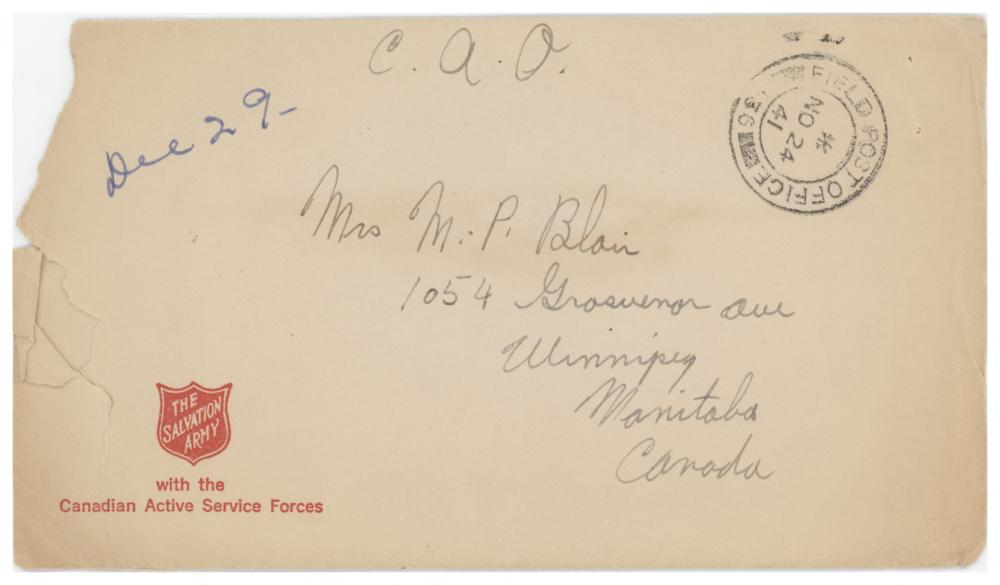 C. A. O.
Dec 29-
FIELD POST OFFICE
NO 24
41
Mrs M. P. Blair
1054 Grosvenor Ave
Winnipeg
Manitoba
Canada
THE
SALVATION
ARMY
with the
Canadian Active Service Forces